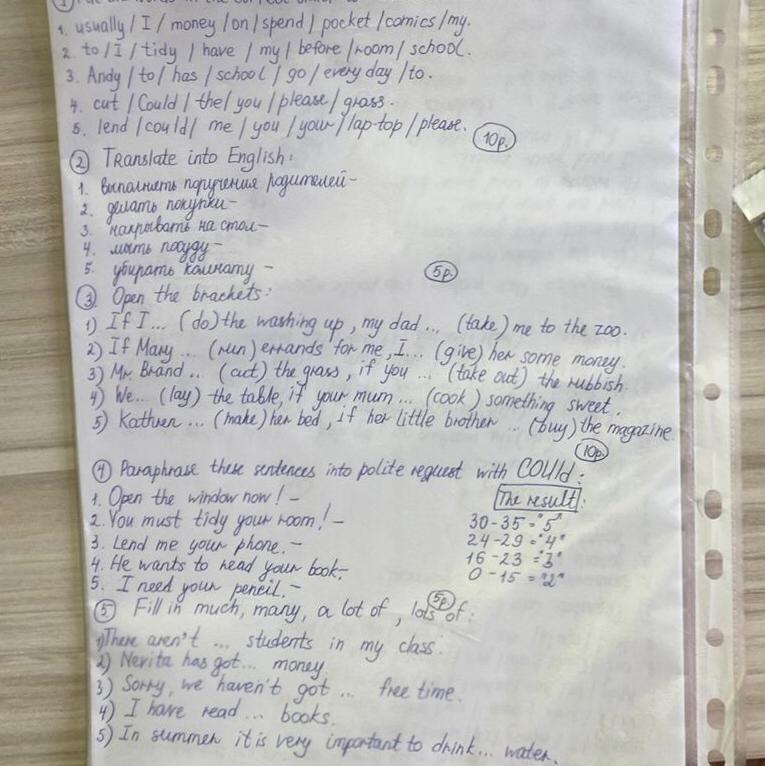 1. usually / I / money / on / spend / pocket / comics / my.
2. to / I / tidy / have / my / before / room / school.
3. Andy / to / has / school / go / every day / to.
4. cut / Could / the / you / please / grass.
5. lend / could / me / you / your / lap-top / please. 10p.
② Translate into English:
1. выполнять поручения родителей-
2. делать покупки-
3. накрывать на стол-
4. мыть посуду-
5. убирать комнату - 5p.
③ Open the brackets:
1) If I... (do) the washing up, my dad ... (take) me to the zoo.
2) If Mary ... (run) errands for me, I... (give) her some money.
3) Mr. Brand ... (cut) the grass, if you ... (take out) the rubbish.
4) We... (lay) the table, if your mum ... (cook) something sweet.
5) Kathren ... (make) her bed, if her little brother ... (buy) the magazine
10p.
④ Paraphrase these sentences into polite request with COULD:
1. Open the window now! -
2. You must tidy your room! -
3. Lend me your phone. -
4. He wants to read your book. -
5. I need your pencil. -
The result:
30-35 = "5"
24-29 = "4"
16-23 = "3"
0-15 = "2"
5p
⑤ Fill in much, many, a lot of, lots of:
1) There aren't ... students in my class.
2) Nerita has got... money
3) Sorry, we haven't got ... free time.
4) I have read ... books.
5) In summer it is very important to drink... water.